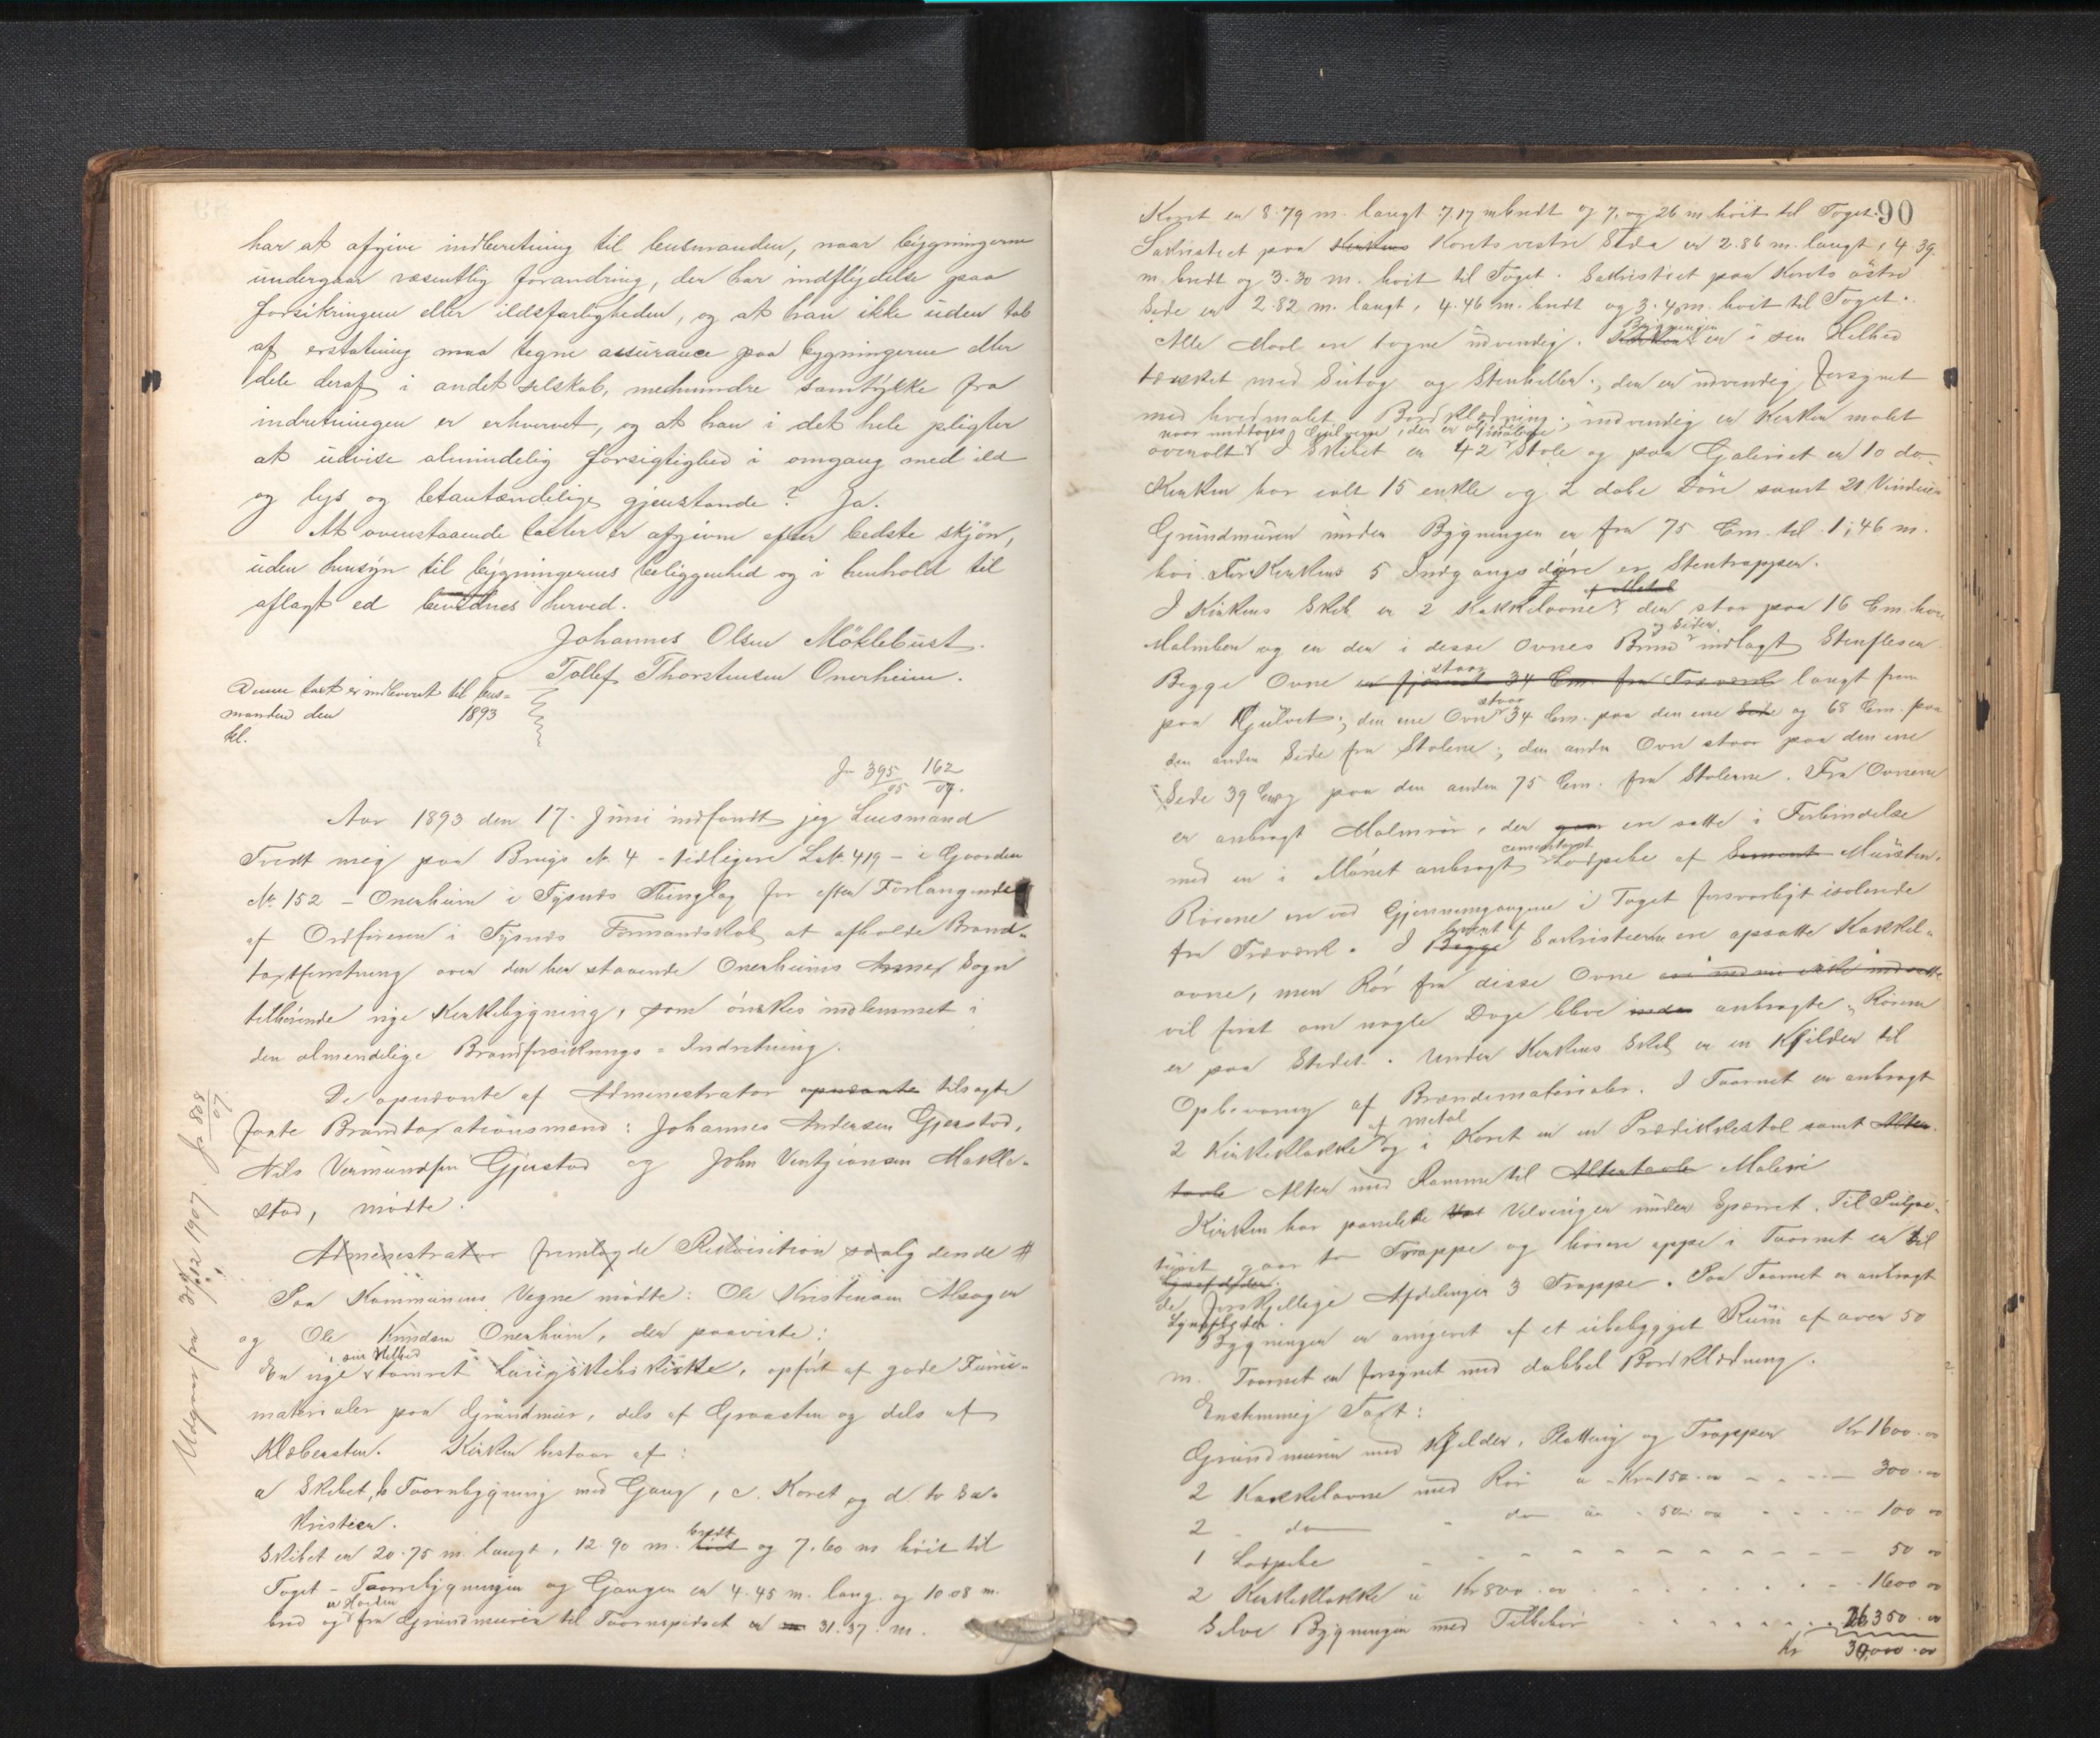 har at afgive indberetning til lensmanden, naar bygningerne
undergaar væsentlig forandring, der har indflydelse paa
forsikringen eller ildsfarligheden, og at han ikke uden tab
af erstatning maa tegne assurance paa bygningerne eller
dele deraf i andet selskab, medmindre samtykke fra
indretningen er erhvervet, og at han i det hele pligter
at udvise almindelig forsigtighed i omgang med ild
og lys og letantændelige gjenstande? Ja.
At ovenstaaende takster er afgivne efter bedste skjön,
uden hensyn til bygningernes beliggenhed og i henhold til
aflagt ed bevidnes herved.
Johannes Olsen Möklebust.
Tollef Thorstensen Onerheim.
Denne takst er indleveret til lens=
manden den 1893
kl.
Jr 395/05 162/07.
Aar 1893 den 17. Juni indfandt jeg Lensmand
Tvedt mig paa Brugs № 4 - tidligere L№ 419 - i Gaarden
№ 152 - Onerheim i Tysnes Thinglag for efter Forlangende
af Ordföreren i Tysnes Formandskab at afholde Brand-
taxtforretning over den her staaende Onerheims Annex Sogn
tilhörende nye Kirkebygning, som önskes indlemmet i
den almendelige Brandforsikrings-Indretning.
De opnævnte af Administrator opnævnte tilsagte
faste Brandtaxationsmænd: Johannes Andersen Gjerstad,
Nils Vermundsen Gjerstad og John Ventzionsen Makle-
stad, mödte.
Administrator fremlagde Rekvisition saalydende #
Paa Kommunens Vegne mödte: Ole Kristensen Alsager
og Ole Knudsen Onerheim, der paaviste:
i sin Helhed
En nye tömret Langskibskirke, opfört af gode Furu-
materialer paa Grundmur, dels af Graasten og dels af
Klæbersten. Kirken bestaar af:
a Skibet, b Taarnbygning med Gang, c. Koret og d. to Sa-
kristier.
bredt
Skibet er 20.75 m. langt, 12.90 m. höit og 7.60 m höit til
Taget - Taarnbygningen og Gangen er 4.45 m. lang. og 10.08 m.
er Höiden
bred og fra Grundmuren til Taarnspidset er 31.37. m.
Udgaar fra 31/12 1907. Jr 808/07.
90
Koret er 8.79 m. langt 7.17 m bredt og 7, og 26 m. höit til Taget.
Sakristiet paa Kirkens Korets vestre Side er 2.86 m. langt, 4.39.
m. bredt og 3.30 m. höit til Taget. Sakristiet paa Korets östre
Side er 2.82 m. langt, 4.46 m. bredt og 3.40 m. höit til Taget.
Bygningen
Alle Maal ere tagne udvendig. Kirken er i sin Helhed
tækket med Sutag og Stenheller; den er udvendig forsynet
med hvidmalet Bordklædning; indvendig er Kirken malet
naar undtages Gulvene, der er
overalt. I Skibet er 42 Stole og paa Galeriet er 10 do.
Kirken har ialt 15 enkle og 2 doble Döre samt 21 Vinduer
Grundmuren under Bygningen er fra 75 Cm. til 1,46 m.
höi. For Kirkens 5 Indgangsdöre er Stentrapper.
af Metal
I Kirkens Skib er 2 Kakkelovne, der staar paa 16 Cm. höie
og Sider
Malmben og er der i disse Ovnes Bund indlagt Stenfliser.
staar
Begge Ovne er fjernet 34 Cm. fra Træværk langt frem
staar
paa Gulvet; den ene Ovn 34 Cm. paa den ene Side og 68 Cm. paa
den anden Side fra Stolene; den anden Ovn staar paa den ene
Side 39 Cm og paa den anden 75 Cm. fra Stolerne. Fra Ovnene
er anbragt Malmrör, der gaar ere satte i Forbindelse
cementeret
med en i Muret anbragt Lodpibe af Cement Mursten.
Rörene ere ved Gjennemgangene i Taget forsvarligt isolerede
hvert af
fra Træværk. I Begge Sakristierne ere opsatte Kakkel-
ovne, men Rör fra disse Ovne ere endnu ikke indsatte
vil först om nogle Dage blive anbragte; Rörene
er paa Stedet. Under Kirkens Skib er en Kjelder til
Opbevaring af Brændematerialer. I Taarnet er anbragt
af metal
2 Kirkeklokker og i Koret er en Prædikkestol samt Alter-
tavle Alter med Ramme til Altertavle Maleri
Kirken har panelede Hvælvinger under Sperret. Til Pulpe-
turet gaar to Trappe og höiere oppe i Taarnet er til
de forskjellige Afdelinger 3 Trapper. Paa Taarnet er anbragt
Lynafleder.
Bygningen er omgivet af et ubebygget Rum af over 50
m. Taarnet er forsynet med dobbel Bordklædning.
Enstemmig Taxt:
Grundmuren med Kjelder, Platting og Trapper Kr 1600.00
2 Kakkelovne med Rör a Kr 150.00 - - - 300.00
2 - do - do a - 50.00 - - - 100 00
1 Lodpibe - - - 50 00
2 Kirkeklokke a Kr 800.00 - - - 1600 00
Selve Bygningen med Tilbehör - - - 26350.00
Kr 30,000.00